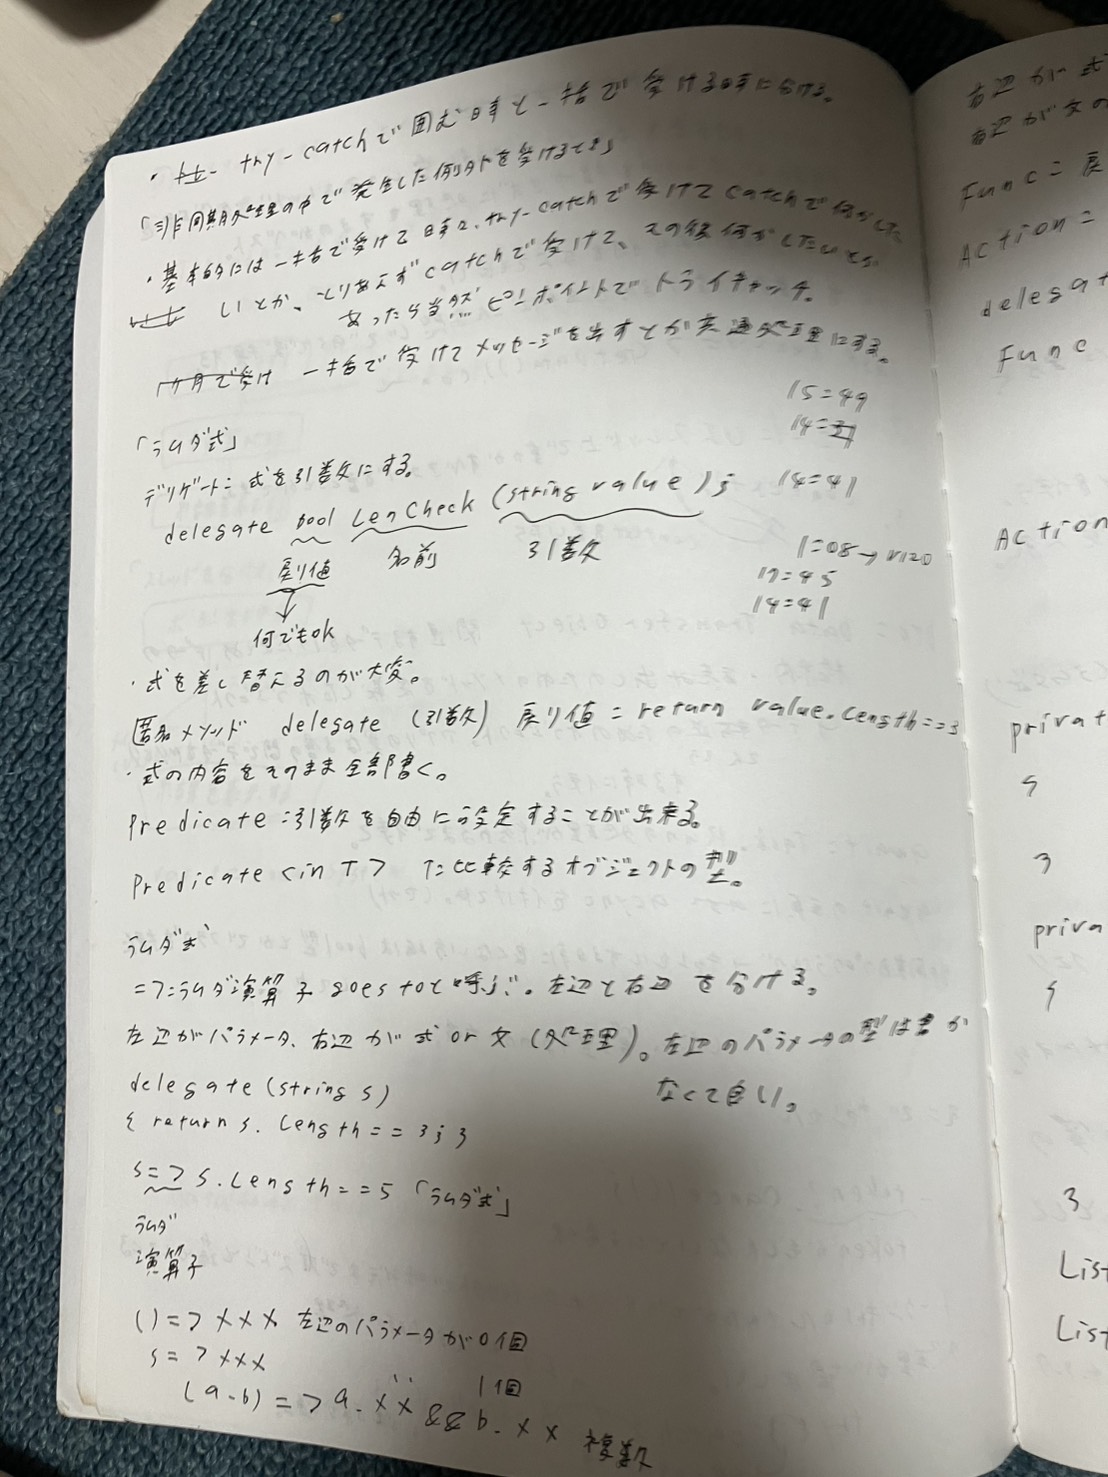 try-catchで囲む時と一括で受ける時に分ける。
「非同期処理の中で発生した例外を受けるとき」
・基本的には一括で受けて 時々、try-catchで受けてcatchで何かした
いとか、とりあえずcatchで受けて、その後何かしたいとか
あったら当然ピンポイントでトライキャッチ。
一括で受けてメッセージを出すとか共通処理にする。
15=49
14=
「ラムダ式」
デリゲート:式を引数にする。
14=41
delegate bool LenCheck (string value);
戻り値 名前 引数
1=08→
17=45
14=41
何でもok
・式を差し替えるのが大変。
匿名メソッド delegate (引数) 戻り値=return value.Length==3
・式の内容をそのまま全部書く。
Predicate:引数を自由に設定することが出来る。
Predicate<in T> T:比較するオブジェクトの型。
ラムダ式
=>:ラムダ演算子 goes toと呼ぶ。左辺と右辺を分ける。
左辺がパラメータ、右辺が式or文(処理)。左辺のパラメータの型は書か
なくて良い。
delegate(string s)
{ return s.Length==3;}
s=>s.Length==5「ラムダ式」
ラムダ
演算子
()=>××× 左辺のパラメータが0個
s=>××× 〃 1個
(a.b)=>a.××&&b.×× 複数
右辺が式
右辺が文の
Func=戻
Action=
delegat
Func
Action
privat
{
}
priva
{
}
List
List